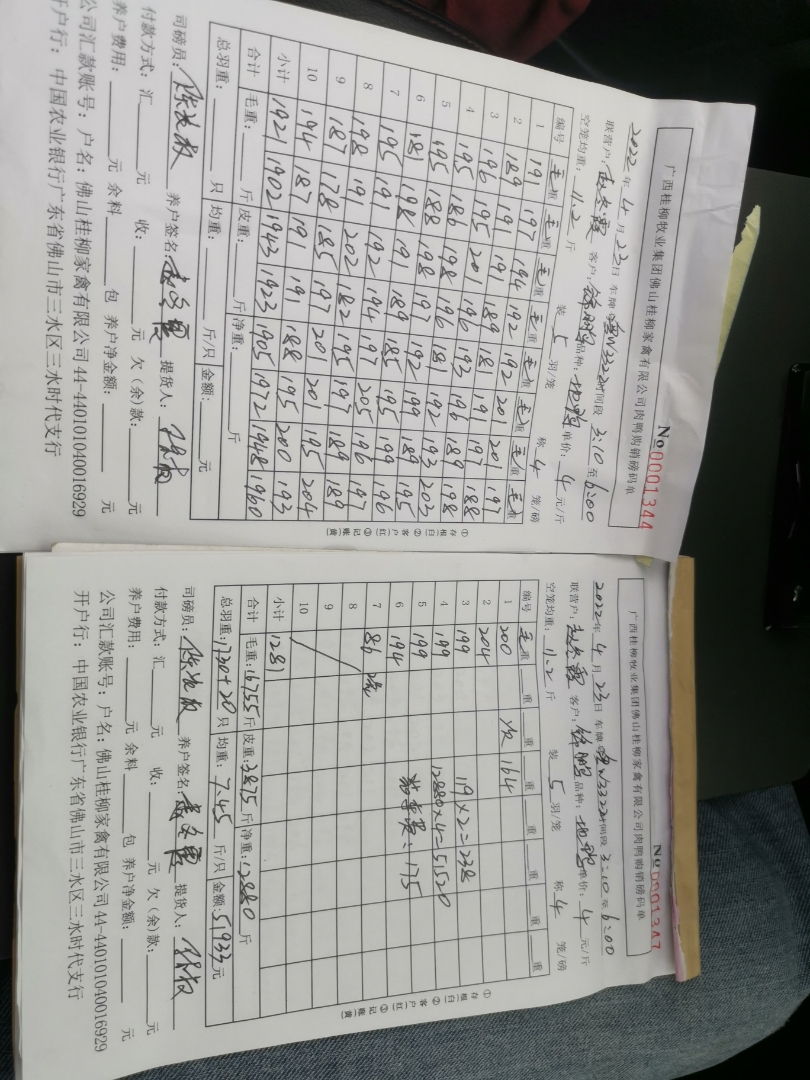 广西桂柳牧业集团佛山桂柳家禽有限公司肉鸭购销磅码单
No 0001344
2022 年 4 月 23 日 车牌号 时间段 3:10 至 6:00
联营户: 客户: 品种: 单价: 4 元/斤
空笼均重: 11.2 斤 装 5 羽/笼 称 4 笼/磅
编号 毛重 毛重 毛重 毛重 毛重 毛重 毛重 毛重
1 191 197 194 192 192 201 201 197
2 189 191 191 189 181 191 197 188
3 196 195 201 196 193 196 189 198
4 195 186 198 196 181 192 193 203
5 195 188 198 197 192 199 189 195
6 181 198 191 189 185 195 199 196
7 195 191 192 194 197 205 196 197
8 198 191 202 182 195 197 189 189
9 187 178 185 197 201 201 195 204
10 194 187 191 191 188 195 200 193
小计 1921 1902 1943 1923 1905 1972 1948 1960
合计 毛重: 斤 皮重: 斤 净重: 斤
总羽重: 只 均重: 斤/只 金额: 元
司磅员: 养户签名: 提货人:
付款方式: 汇 元 收: 元 欠(余)款: 元
养户费用: 元 余料 包 养户净金额: 元
公司汇款账号: 户名: 佛山桂柳家禽有限公司 44-440101040016929
开户行: 中国农业银行广东省佛山市三水区三水时代支行
①存根(白) ②客户(红) ③记账(黄)
广西桂柳牧业集团佛山桂柳家禽有限公司肉鸭购销磅码单
No 0001347
2022 年 4 月 23 日 车牌号 时间段 3:10 至 6:00
联营户: 客户: 品种: 单价: 4 元/斤
空笼均重: 11.2 斤 装 5 羽/笼 称 4 笼/磅
编号 毛重 重 重 重 重 重 重 重
1 200 次 164
2 204
3 199 119×2=238
4 199 12880×4=51520
5 199 175
6 194
7 86
8
9
10
小计 1281
合计 毛重: 16755 斤 皮重: 3875 斤 净重: 12880 斤
总羽重: 1730+20 只 均重: 7.45 斤/只 金额: 51933 元
司磅员: 养户签名: 提货人:
付款方式: 汇 元 收: 元 欠(余)款: 元
养户费用: 元 余料 包 养户净金额: 元
公司汇款账号: 户名: 佛山桂柳家禽有限公司 44-440101040016929
开户行: 中国农业银行广东省佛山市三水区三水时代支行
①存根(白) ②客户(红) ③记账(黄)